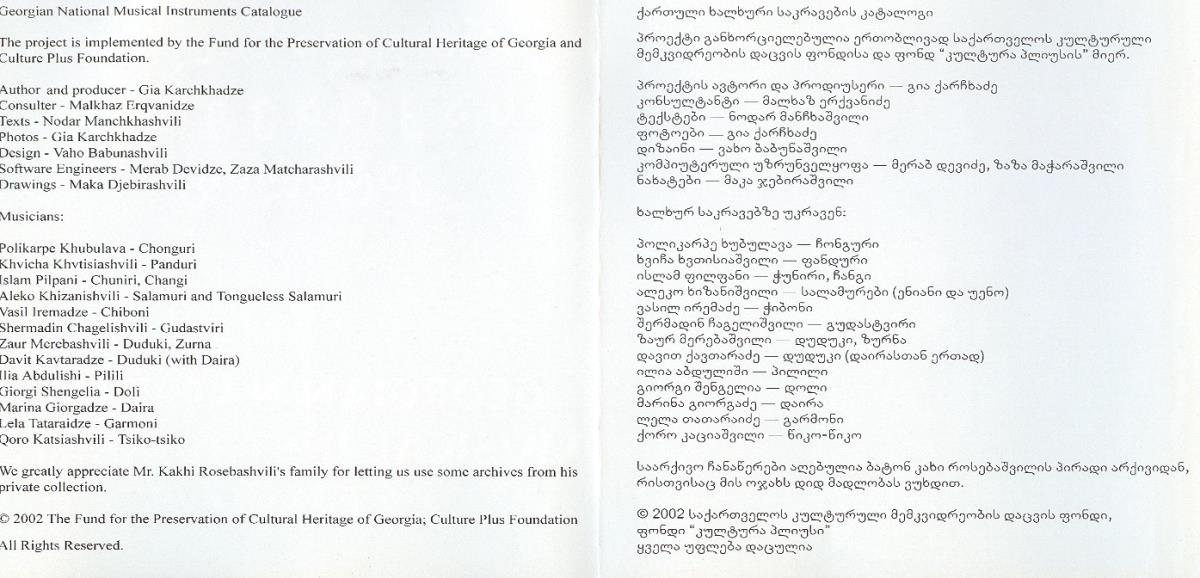 Georgian National Musical Instruments Catalogue
The project is implemented by the Fund for the Preservation of Cultural Heritage of Georgia and
Culture Plus Foundation.
Author and producer - Gia Karchkhadze
Consulter - Malkhaz Erqvanidze
Texts - Nodar Manchkhashvili
Photos - Gia Karchkhadze
Design - Vaho Babunashvili
Software Engineers - Merab Devidze, Zaza Matcharashvili
Drawings - Maka Djebirashvili
Musicians:
Polikarpe Khubulava - Chonguri
Khvicha Khvtisiashvili - Panduri
Islam Pilpani - Chuniri, Changi
Aleko Khizanishvili - Salamuri and Tongueless Salamuri
Vasil Iremadze - Chiboni
Shermadin Chagelishvili - Gudastviri
Zaur Merebashvili - Duduki, Zurna
Davit Kavtaradze - Duduki (with Daira)
Ilia Abdulishi - Pilili
Giorgi Shengelia - Doli
Marina Giorgadze - Daira
Lela Tataraidze - Garmoni
Qoro Katsiashvili - Tsiko-tsiko
We greatly appreciate Mr. Kakhi Rosebashvili's family for letting us use some archives from his
private collection.
© 2002 The Fund for the Preservation of Cultural Heritage of Georgia; Culture Plus Foundation
All Rights Reserved.
ქართული ხალხური საკრავების კატალოგი
პროექტი განხორციელებულია ერთობლივად საქართველოს კულტურული
მემკვიდრეობის დაცვის ფონდისა და ფონდ “კულტურა პლიუსის” მიერ.
პროექტის ავტორი და პროდიუსერი — გია ქარჩხაძე
კონსულტანტი — მალხაზ ერქვანიძე
ტექსტები — ნოდარ მანჩხაშვილი
ფოტოები — გია ქარჩხაძე
დიზაინი — ვახო ბაბუნაშვილი
კომპიუტერული უზრუნველყოფა — მერაბ დევიძე, ზაზა მაჭარაშვილი
ნახატები — მაკა ჯებირაშვილი
ხალხურ საკრავებზე უკრავენ:
პოლიკარპე ხუბულავა — ჩონგური
ხვიჩა ხვთისიაშვილი — ფანდური
ისლამ ფილფანი — ჭუნირი, ჩანგი
ალეკო ხიზანიშვილი — სალამურები (ენიანი და უენო)
ვასილ ირემაძე — ჭიბონი
შერმადინ ჩაგელიშვილი — გუდასტვირი
ზაურ მერებაშვილი — დუდუკი, ზურნა
დავით ქავთარაძე — დუდუკი (დაირასთან ერთად)
ილია აბდულიში — პილილი
გიორგი შენგელია — დოლი
მარინა გიორგაძე — დაირა
ლელა თათარაიძე — გარმონი
ქორო კაციაშვილი — წიკო-წიკო
საარქივო ჩანაწერები აღებულია ბატონ კახი როსებაშვილის პირადი არქივიდან,
რისთვისაც მის ოჯახს დიდ მადლობას ვუხდით.
© 2002 საქართველოს კულტურული მემკვიდრეობის დაცვის ფონდი,
ფონდი “კულტურა პლიუსი”
ყველა უფლება დაცულია